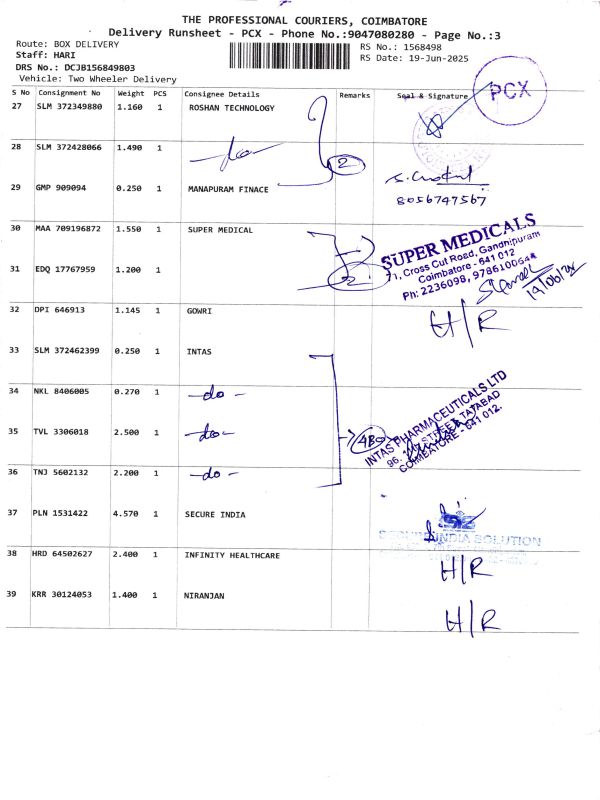 THE PROFESSIONAL COURIERS, COIMBATORE
Delivery Runsheet - PCX - Phone No.:9047080280 - Page No.:3
Route: BOX DELIVERY
Staff: HARI
DRS No.: DCJB156849803
Vehicle: Two Wheeler Delivery
RS No.: 1568498
RS Date: 19-Jun-2025
PCX
S No Consignment No Weight PCS Consignee Details Remarks Seal & Signature
27 SLM 372349880 1.160 1 ROSHAN TECHNOLOGY
28 SLM 372428066 1.490 1 -do-
2
29 GMP 909094 0.250 1 MANAPURAM FINACE
8056747567
30 MAA 709196872 1.550 1 SUPER MEDICAL
SUPER MEDICALS
71, Cross Cut Road, Gandhipuram
Coimbatore - 641 012
Ph: 2236098, 9786100644
19/06/25
31 EDQ 17767959 1.200 1
2
32 DPI 646913 1.145 1 GOWRI H/R
33 SLM 372462399 0.250 1 INTAS
34 NKL 8406005 0.270 1 -do-
35 TVL 3306018 2.500 1 -do-
INTAS PHARMACEUTICALS LTD
STREET, TATABAD
COIMBATORE - 641 012.
36 TNJ 5602132 2.200 1 -do-
37 PLN 1531422 4.570 1 SECURE INDIA
SECURE INDIA SOLUTION
38 HRD 64502627 2.400 1 INFINITY HEALTHCARE H/R
39 KRR 30124053 1.400 1 NIRANJAN H/R